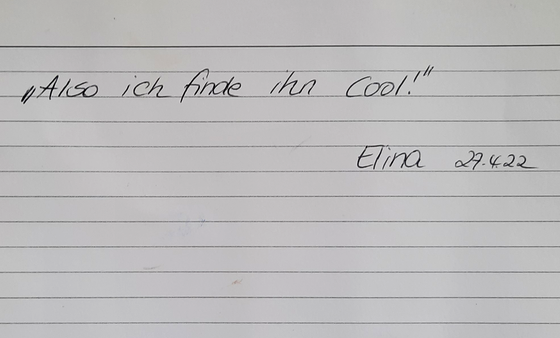 „Also ich finde ihn Cool!“
Elina 27.4.22